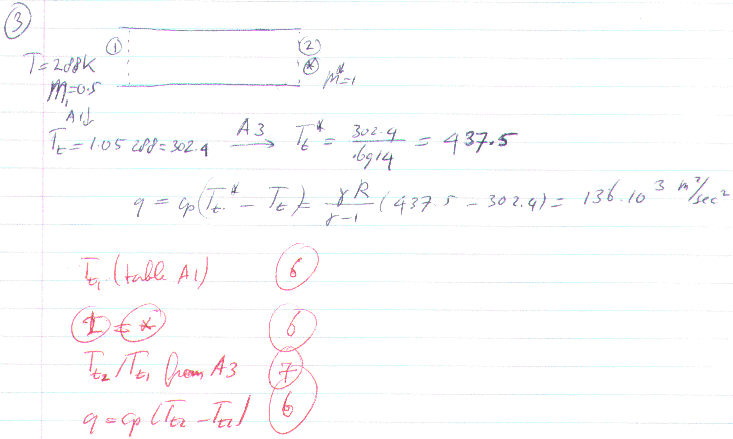 3
① ②
T=288K ⊛ M*=1
M₁=0.5
A1↓
Tt=1.05 288=302.4 A3 → Tt* = 302.4/.6914 = 437.5
q = cp(Tt* - Tt) = γR/(γ-1) (437.5 - 302.4) = 136.10³ m²/sec²
Tt₁ (table A1) 6
② = * 6
Tt₂/Tt₁ from A3 7
q = cp (Tt₂ - Tt₁) 6